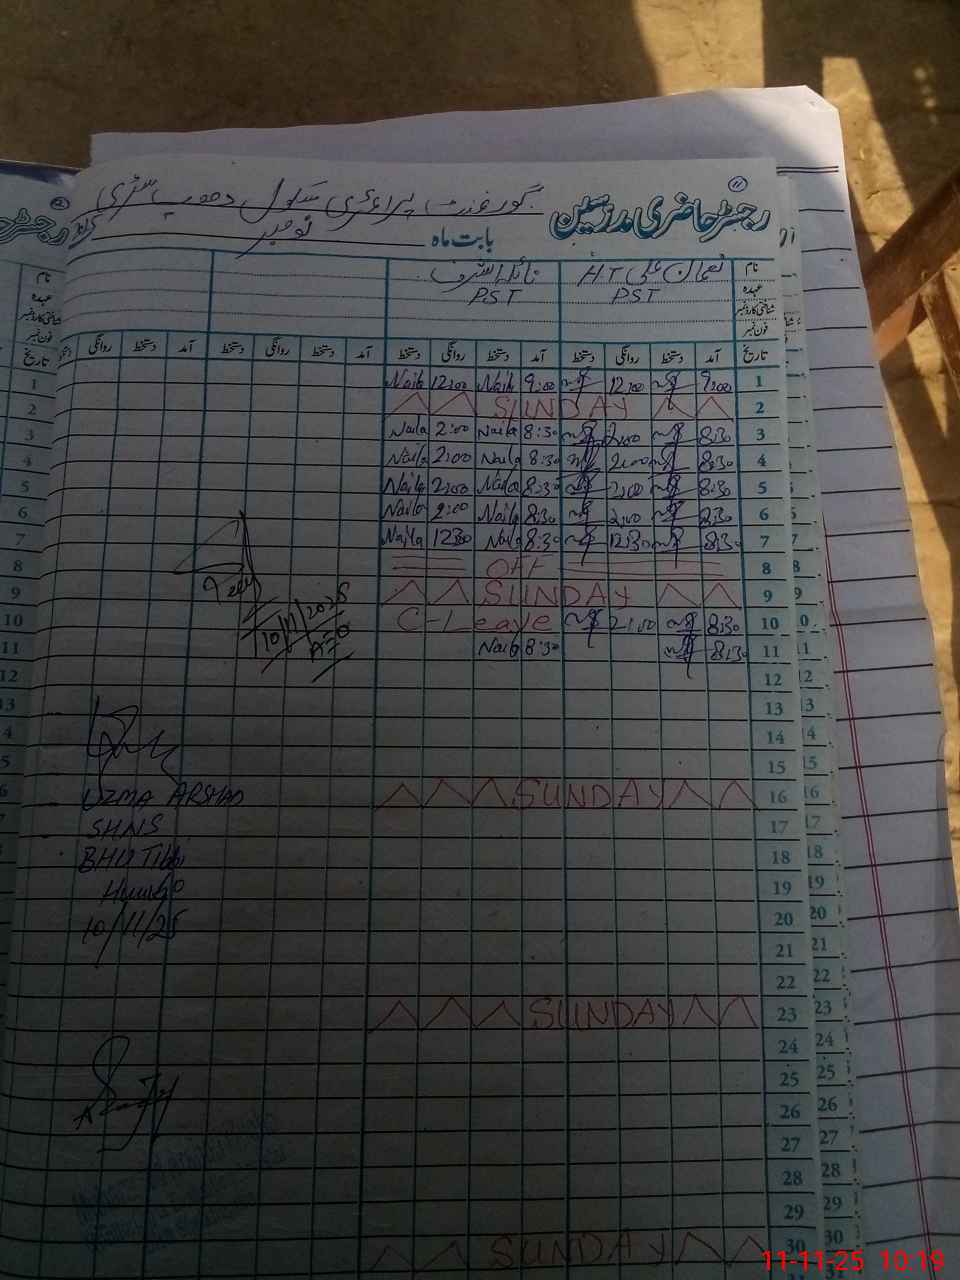 رجسٹر حاضری مدرسین
گورنمنٹ پرائمری سکول
بابت ماہ نومبر
نام نعمان علی HT نائلہ اشرف
عہدہ PST PST
شناختی کارڈ نمبر
فون نمبر
تاریخ آمد دستخط روانگی دستخط آمد دستخط روانگی دستخط آمد دستخط روانگی دستخط آمد دستخط روانگی
1 9:00 12:00 9:00 Naila 12:00 Naila
2 SUNDAY
3 8:30 2:00 8:30 Naila 2:00 Naila
4 8:30 2:00 8:30 Naila 2:00 Naila
5 8:30 2:00 8:30 Naila 2:00 Naila
6 8:30 2:00 8:30 Naila 2:00 Naila
7 8:30 12:30 8:30 Naila 12:30 Naila
8 OFF
9 SUNDAY
10 8:30 2:00 C-Leave
11 8:30 8:30 Naila
12
13
14
15
16 SUNDAY
17
18
19
20
21
22
23 SUNDAY
24
25
26
27
28
29
30 SUNDAY
10/11/2025
A=0
UZMA ARSHAD
SHNS
BHU Tibbi
10/11/25
11-11-25 10:19